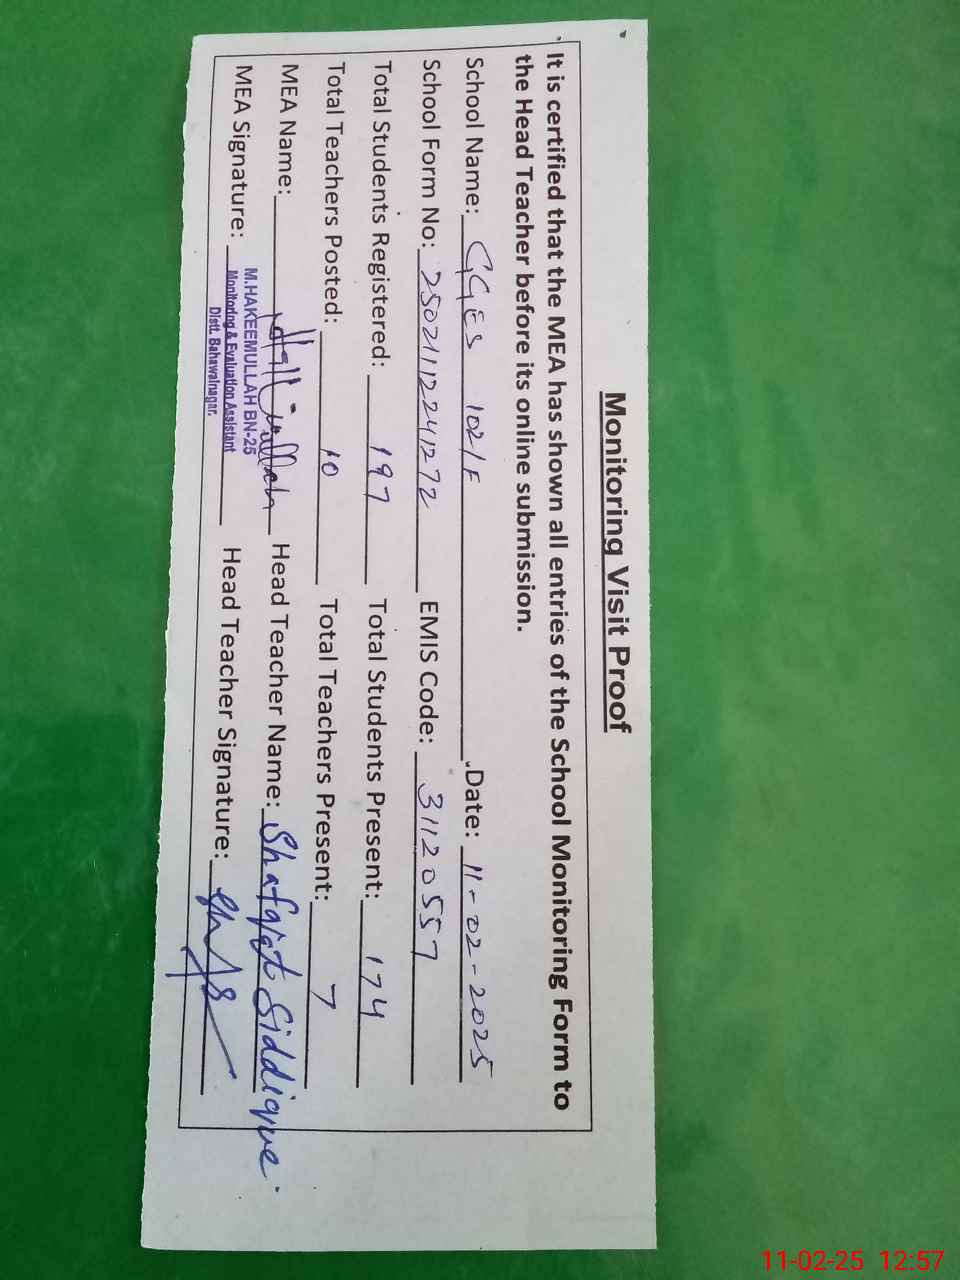 Monitoring Visit Proof
It is certified that the MEA has shown all entries of the School Monitoring Form to
the Head Teacher before its online submission.
School Name: GGES 102/F Date: 11-02-2025
School Form No: 25021112241272 EMIS Code: 31120557
Total Students Registered: 197 Total Students Present: 174
Total Teachers Posted: 10 Total Teachers Present: 7
MEA Name: Head Teacher Name: Shafqat Siddique
MEA Signature: Head Teacher Signature:
M.HAKEEMULLAH BN-25
Monitoring & Evaluation Assistant
Distt. Bahawalnagar.
11-02-25 12:57